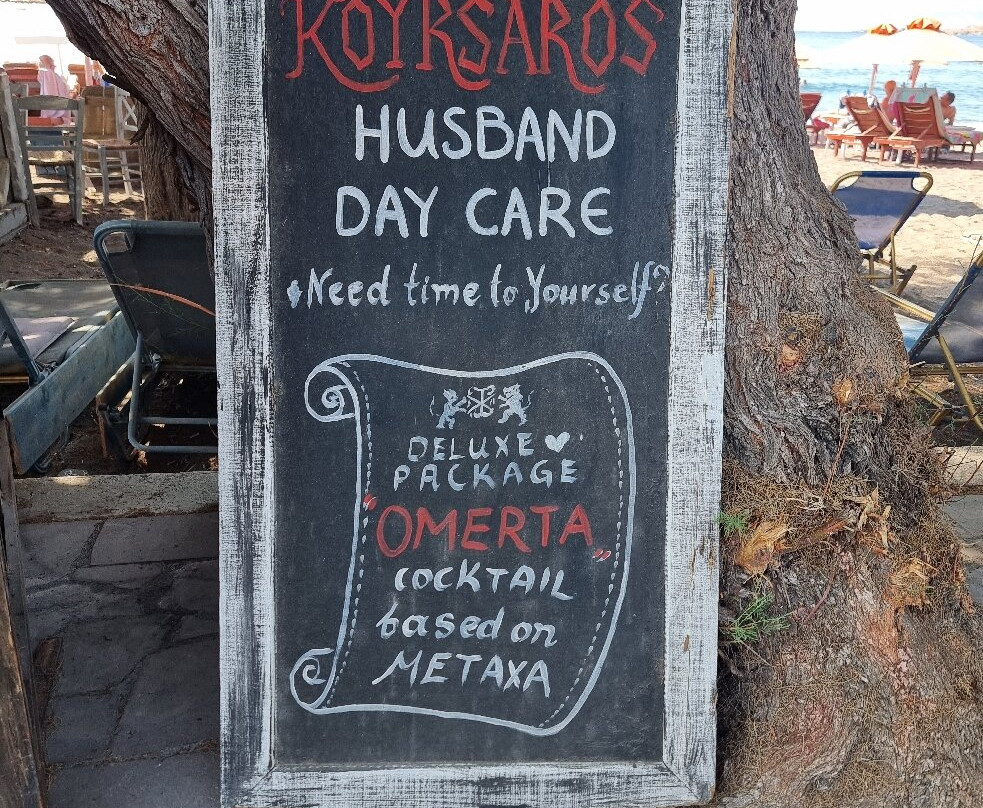 KOYRSAROS
HUSBAND
DAY CARE
Need time to Yourself?
DELUXE
PACKAGE
"OMERTA„
COCKTAIL
based on
METAXA